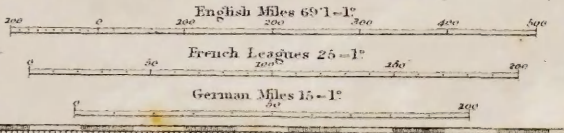 English Miles 69'1=1°
100 0 100 200 300 400 500
French Leagues 25=1°
0 50 100 150 200
German Miles 15=1°
0 50 100